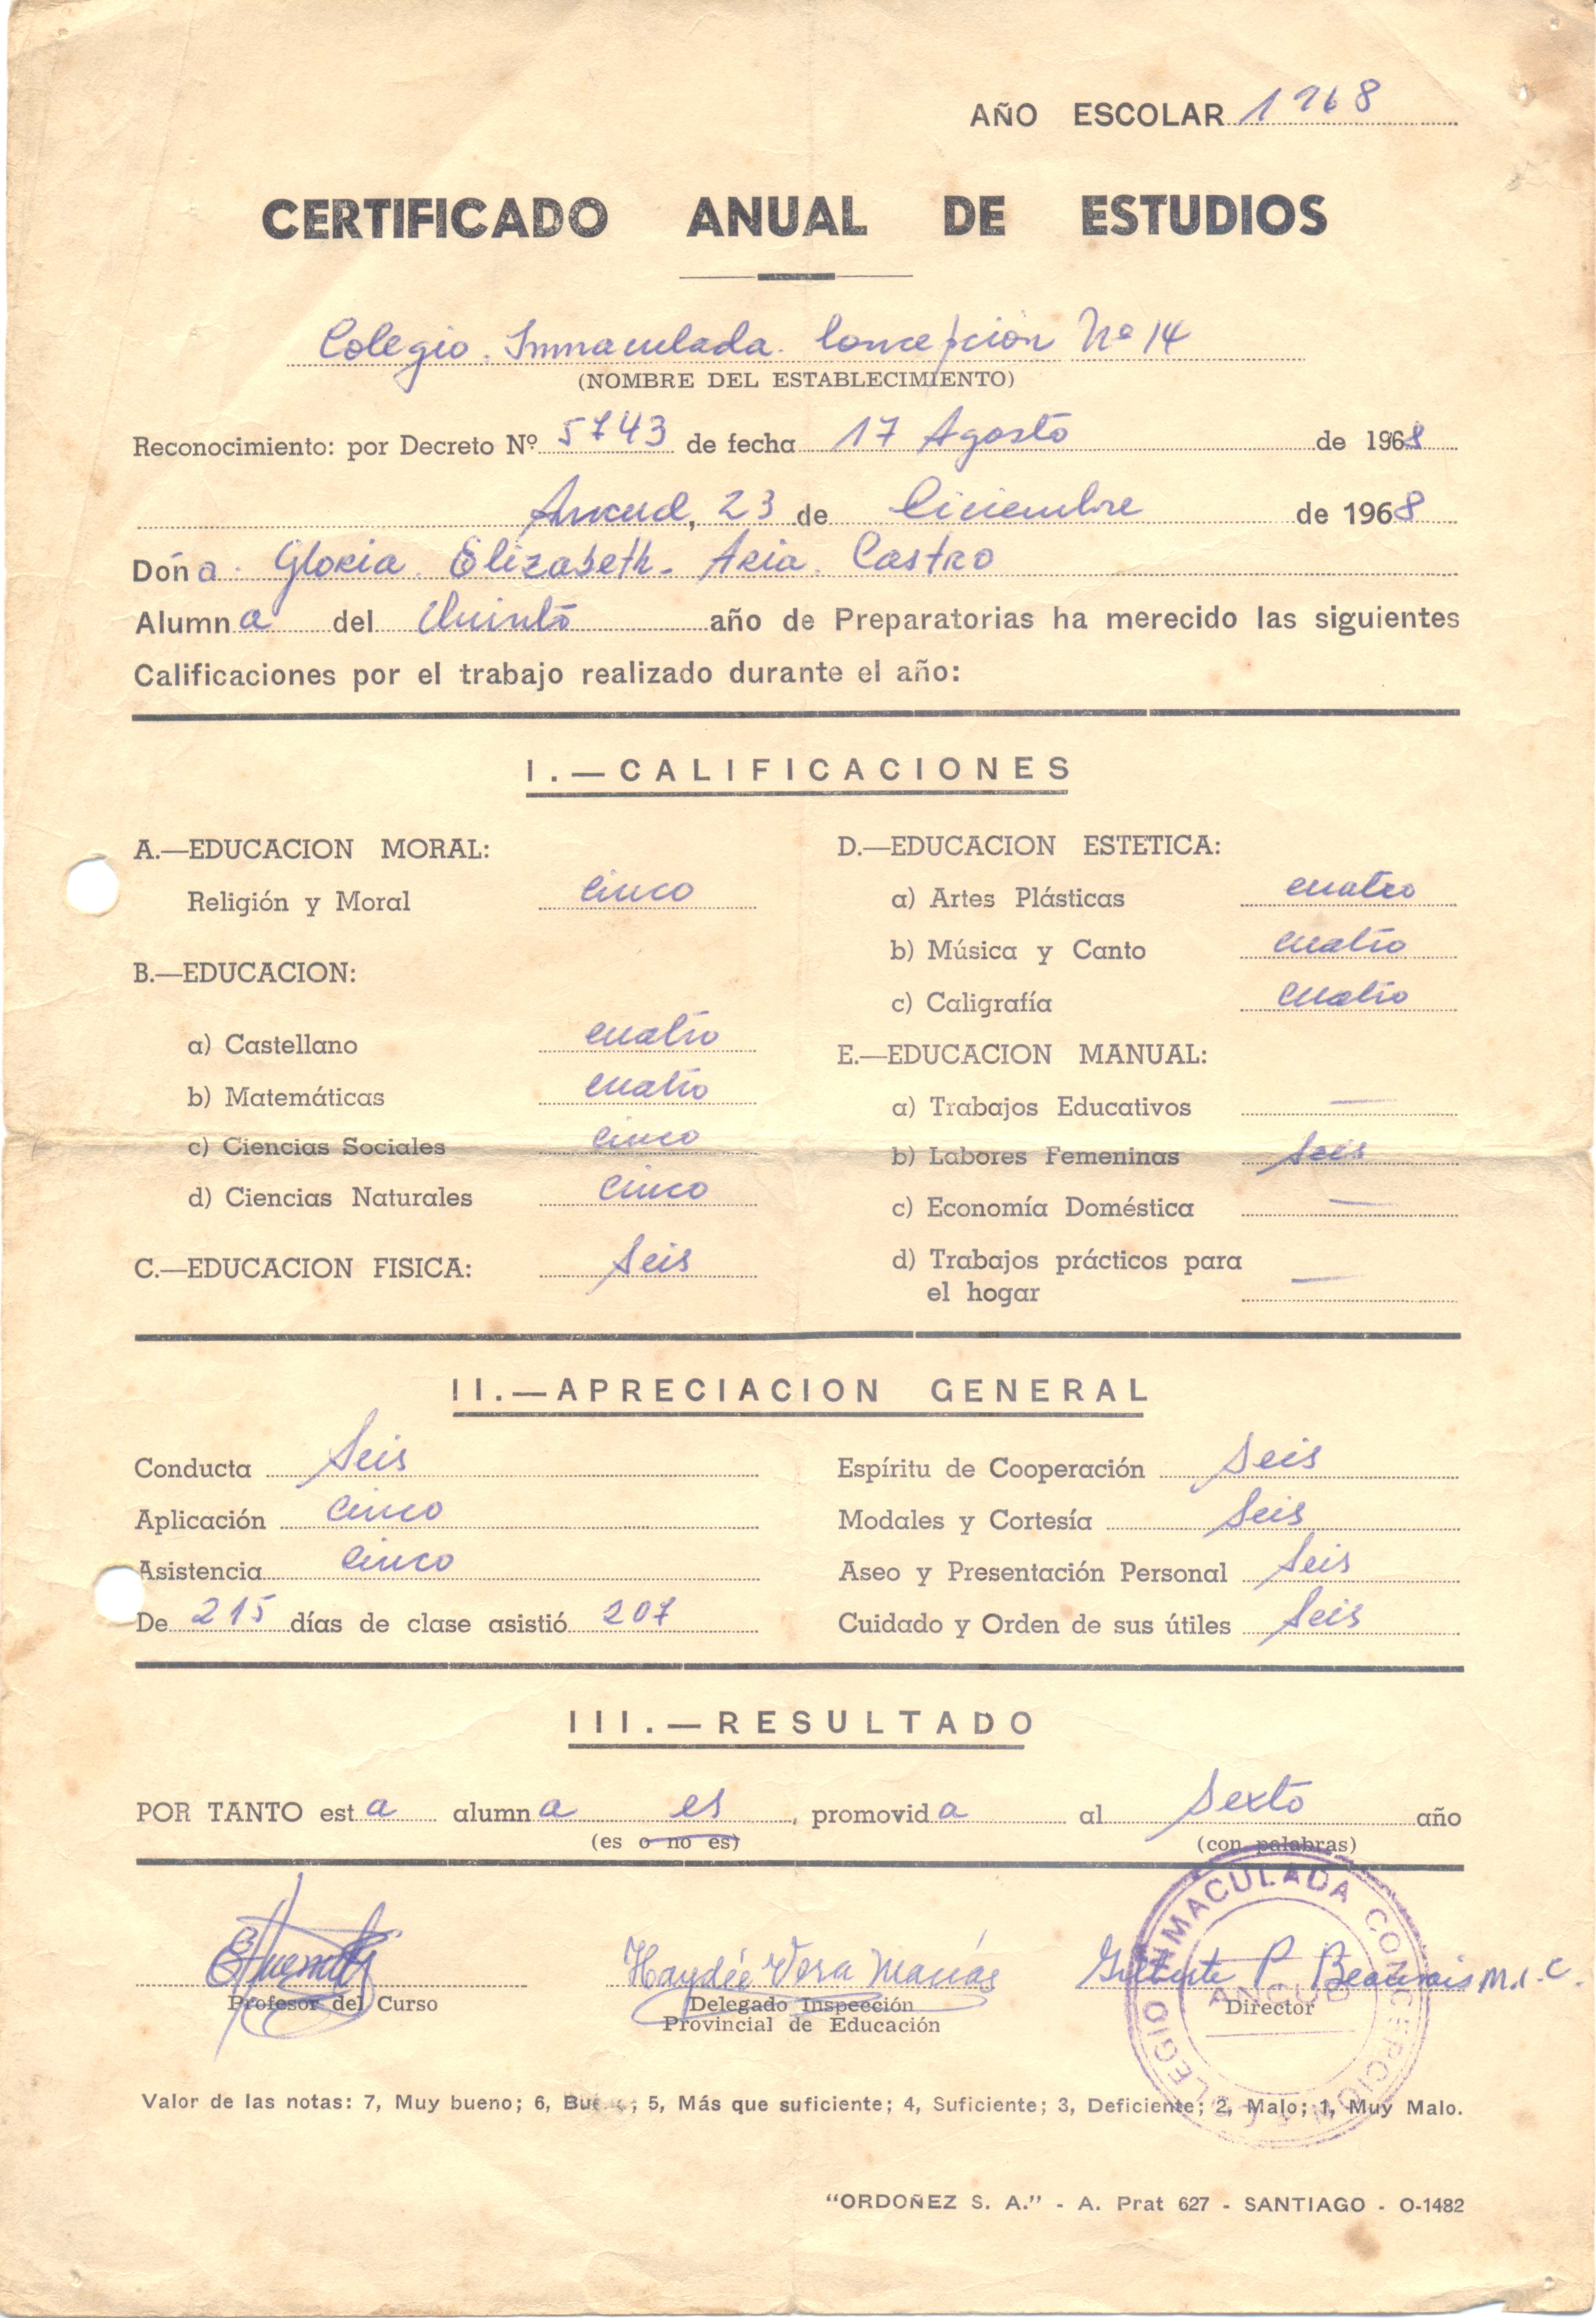 AÑO ESCOLAR 1968
CERTIFICADO ANUAL DE ESTUDIOS
Colegio. Inmaculada. Concepción Nº 14
(NOMBRE DEL ESTABLECIMIENTO)
Reconocimiento: por Decreto Nº 5743 de fecha 17 Agosto de 1968
Ancud, 23 de Diciembre de 1968
Doña Gloria Elizabeth Aria Castro
Alumna del Quinto año de Preparatorias ha merecido las siguientes
Calificaciones por el trabajo realizado durante el año:
I.—CALIFICACIONES
A.—EDUCACION MORAL:
Religión y Moral cinco
B.—EDUCACION:
a) Castellano cuatro
b) Matemáticas cuatro
c) Ciencias Sociales cinco
d) Ciencias Naturales cinco
C.—EDUCACION FISICA: seis
D.—EDUCACION ESTETICA:
a) Artes Plásticas cuatro
b) Música y Canto cuatro
c) Caligrafía cuatro
E.—EDUCACION MANUAL:
a) Trabajos Educativos —
b) Labores Femeninas seis
c) Economía Doméstica —
d) Trabajos prácticos para
el hogar —
II.—APRECIACION GENERAL
Conducta seis
Aplicación cinco
Asistencia cinco
De 215 días de clase asistió 207
Espíritu de Cooperación seis
Modales y Cortesía seis
Aseo y Presentación Personal seis
Cuidado y Orden de sus útiles seis
III.—RESULTADO
POR TANTO esta alumna es, promovida al sexto año
(es o no es) (con palabras)
Haydée Vera Macías
P. Beauvais M.I.C.
Profesor del Curso
Delegado Inspección
Provincial de Educación
Director
COLEGIO INMACULADA CONCEPCION
ANCUD
Valor de las notas: 7, Muy bueno; 6, Bueno; 5, Más que suficiente; 4, Suficiente; 3, Deficiente; 2, Malo; 1, Muy Malo.
"ORDOÑEZ S. A." - A. Prat 627 - SANTIAGO - O-1482